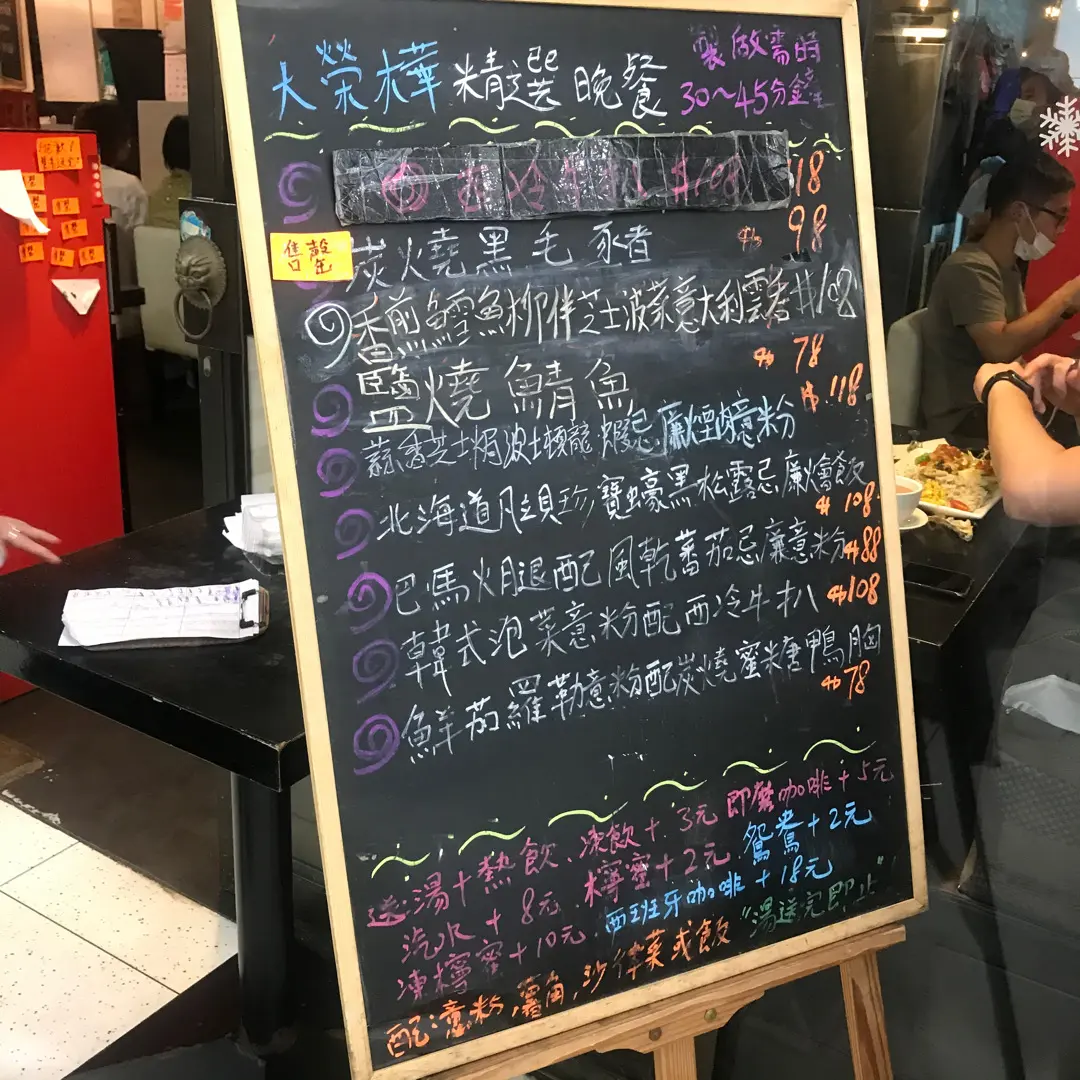 大榮樺 精選 晚餐
製做需時
30～45分鐘
$108
118
售罄
炭火燒黑毛豕者 $98
香煎鱈魚柳伴芝士波菜意大利雲吞 $108
鹽燒鯖魚 $78
蒜香芝士焗波士頓龍蝦忌廉煙肉意粉 $118
北海道帆立貝珍寶蠔黑松露忌廉燴飯 $108
巴馬火腿配風乾蕃茄忌廉意粉 $88
韓式泡菜意粉配西冷牛扒 $108
鮮茄羅勒意粉配炭燒蜜糖鴨胸 $78
送:湯+熱飲、凍飲+3元 即磨咖啡+5元
汽水+8元 檸蜜+2元 鴛鴦+2元
凍檸蜜+10元 西班牙咖啡+18元
配:意粉,薯角,沙律菜或飯 "湯送完即止"